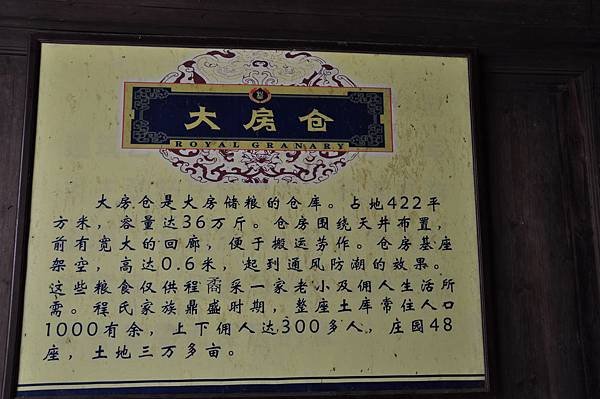 大房仓
ROYAL GRANARY
大房仓是大房储粮的仓库。占地422平
方米，容量达36万斤。仓房围绕天井布置，
前有宽大的回廊，便于搬运劳作。仓房基座
架空，高达0.6米，起到通风防潮的效果。
这些粮食仅供程矞采一家老小及佣人生活所
需。程氏家族鼎盛时期，整座土库常住人口
1000有余，上下佣人达300多人，庄园48
座，土地三万多亩。